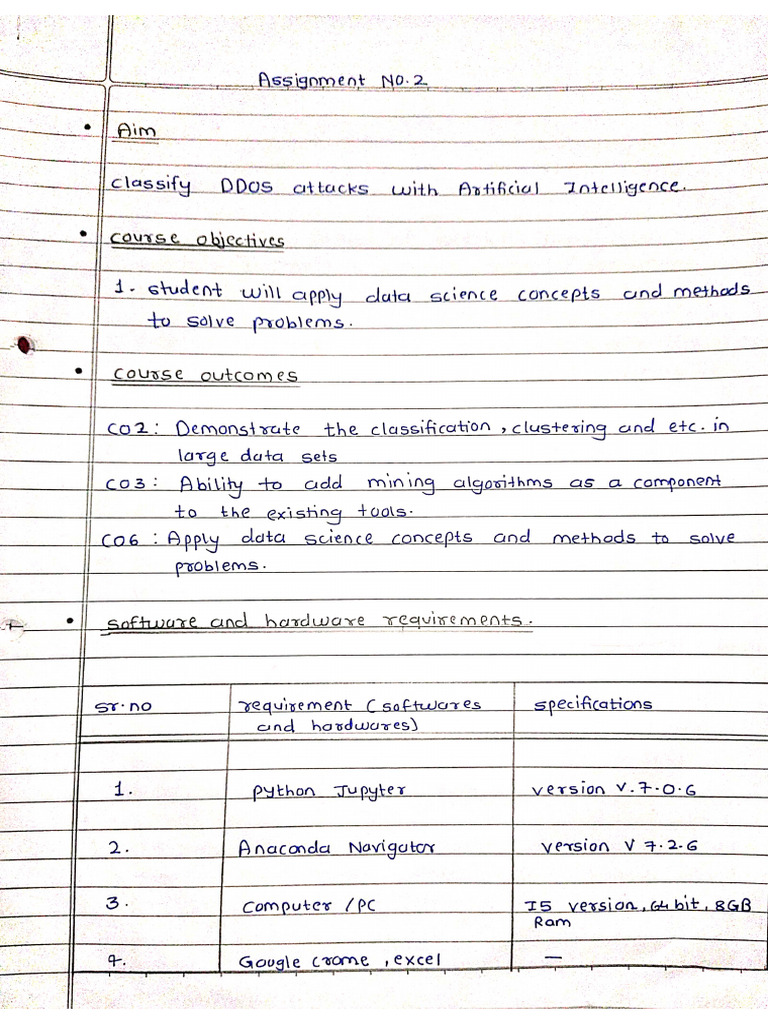 Assignment No.2
• Aim
classify DDOS attacks with Artificial Intelligence.
• course objectives
1. student will apply data science concepts and methods
to solve problems.
• course outcomes
CO2: Demonstrate the classification, clustering and etc. in
large data sets
CO3: Ability to add mining algorithms as a component
to the existing tools.
CO6: Apply data science concepts and methods to solve
problems.
• software and hardware requirements.
sr.no requirement (softwares specifications
and hardwares)
1. python Jupyter version v.7.0.6
2. Anaconda Navigator version v 7.2.6
3. computer /PC I5 version, 64 bit, 8GB
Ram
4. Google crome, excel —